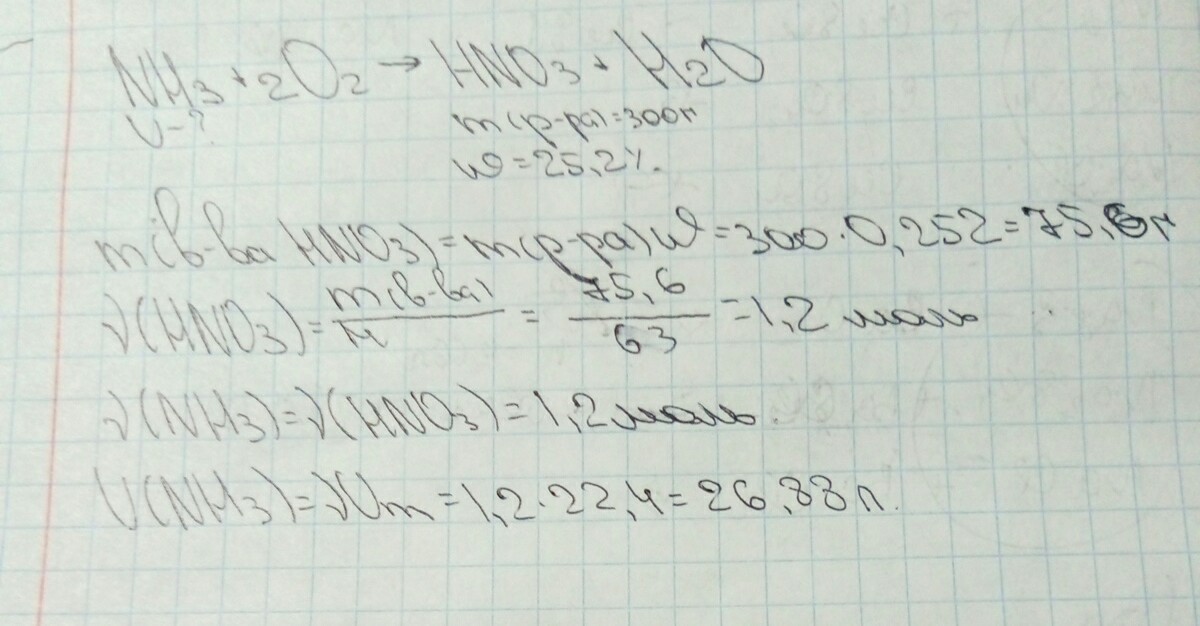 NH3 + 2O2 → HNO3 + H2O
V-? m(р-ра)=300г
w=25,2%.
m(в-ва HNO3)=m(р-ра)w=300·0,252=75,6г
ν(HNO3)=m(в-ва)/M = 75,6/63 =1,2 моль
ν(NH3)=ν(HNO3)=1,2 моль
V(NH3)=νVm=1,2·22,4=26,88л.